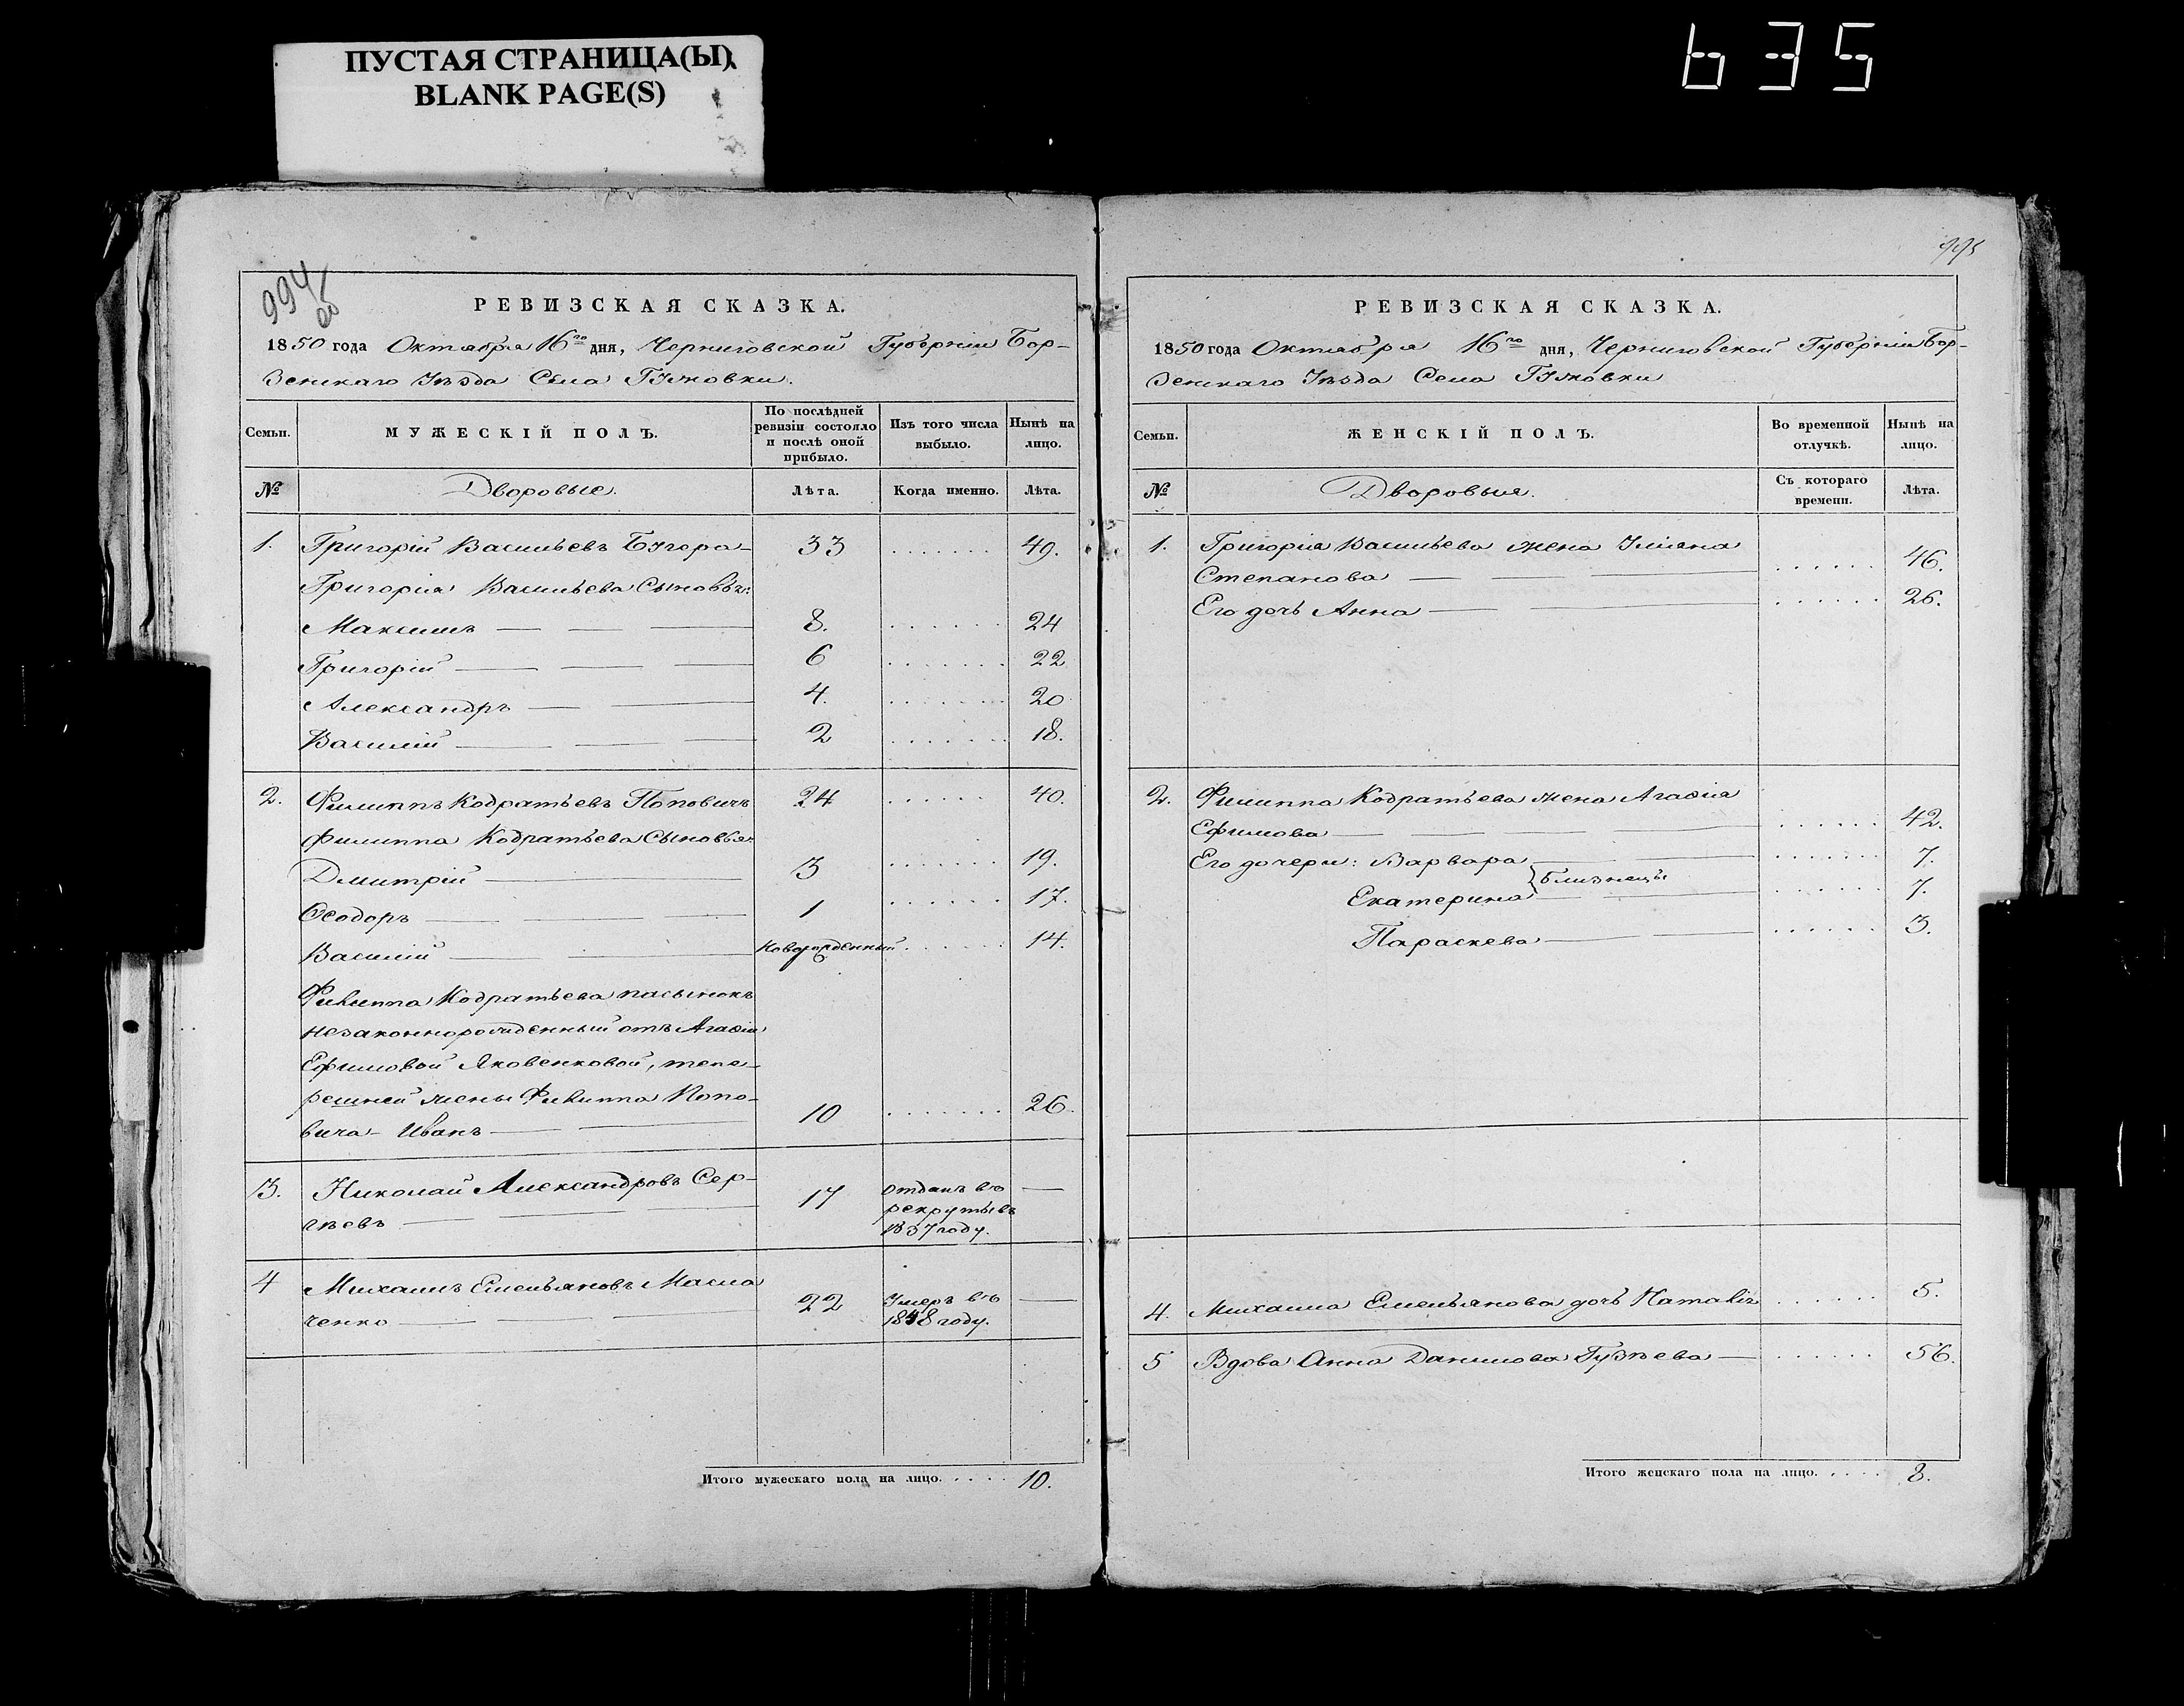 ПУСТАЯ СТРАНИЦА(Ы)
BLANK PAGE(S)
635
994
об
РЕВИЗСКАЯ СКАЗКА.
1850 года Октября 16го дня, Черниговской Губерніи Бор-
зенскаго Уѣзда Села Гужовки.
Семьи. МУЖЕСКІЙ ПОЛЪ. По послѣдней ревизіи состояло и послѣ оной прибыло. Изъ того числа выбыло. Нынѣ на лицо.
№ Дворовые. Лѣта. Когда именно. Лѣта.
1. Григорій Васильевъ Бугера- 33 ....... 49.
Григорія Васильева Сыновья:
Максимъ 8. ....... 24
Григорій 6 ....... 22
Александръ 4. ....... 20
Василій 2 ....... 18.
2. Филиппъ Кодратьевъ Поповичъ 24 ...... 40.
Филиппа Кодратьева Сыновья:
Дмитрій 3 ....... 19.
Ѳеодоръ 1 ...... 17.
Василій Новорожденный ...... 14.
Филиппа Кодратьева пасынокъ
незаконнорожденный отъ Агафіи
Ефимовой Яковенковой, тепе-
решней жены Филиппа Попо-
вича- Иванъ 10 ....... 26.
3. Николай Александровъ Сер- 17 отданъ въ —
гѣевъ рекруты въ
1837 году.
4 Михаилъ Емельяновъ Масла
ченко 22 Умеръ въ —
1848 году.
Итого мужескаго пола на лицо. .... 10.
995
РЕВИЗСКАЯ СКАЗКА.
1850 года Октября 16го дня, Черниговской Губерніи Бор-
зенскаго Уѣзда Села Гужовки
Семьи. ЖЕНСКІЙ ПОЛЪ. Во временной отлучкѣ. Нынѣ на лицо.
№ Дворовыя. Съ котораго времени. Лѣта.
1. Григорія Васильева жена Уліяна
Степанова ...... 46.
Его дочь Анна ...... 26.
2. Филиппа Кодратьева жена Агафія
Ефимова ...... 42.
Его дочери: Варвара ...... 7.
Близнецы
Екатерина ...... 7.
Параскева ...... 3.
4. Михаила Емельянова дочь Наталія ...... 5.
5 Вдова Анна Данилова Гузѣева ...... 56.
Итого женскаго пола на лицо. .... 8.